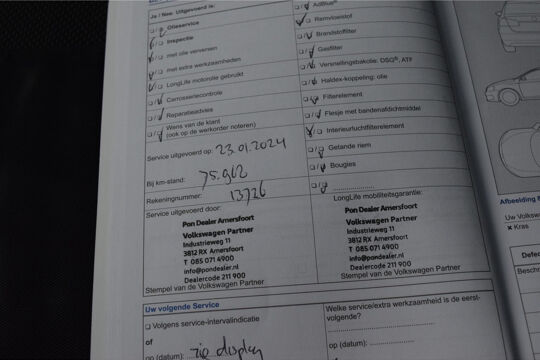 Ja / Nee Uitgevoerd is:
Olieservice
Inspectie
met olie verversen
met extra werkzaamheden
LongLife motorolie gebruikt
Carrosseriecontrole
Reparatieadvies
Wens van de klant
(ook op de werkorder noteren)
Service uitgevoerd op: 23.01.2024
Bij km-stand: 75.962
Rekeningnummer: 13726
Service uitgevoerd door:
Pon Dealer Amersfoort
Volkswagen Partner
Industrieweg 11
3812 RX Amersfoort
T 085 071 4900
info@pondealer.nl
Dealercode 211 900
Stempel van de Volkswagen Partner
AdBlue®
Remvloeistof
Brandstoffilter
Gasfilter
Versnellingsbakolie: DSG®, ATF
Haldex-koppeling: olie
Filterelement
Flesje met bandenafdichtmiddel
Interieurluchtfilterelement
Getande riem
Bougies
LongLife mobiliteitsgarantie:
Pon Dealer Amersfoort
Volkswagen Partner
Industrieweg 11
3812 RX Amersfoort
T 085 071 4900
info@pondealer.nl
Dealercode 211 900
Stempel van de Volkswagen Partner
Uw volgende Service
Volgens service-intervalindicatie
of
op (datum): zie display
Welke service/extra werkzaamheid is de eerst-
volgende?
op (datum):
Afbeelding
Uw Volksw
× Kras
Defec
Beschr